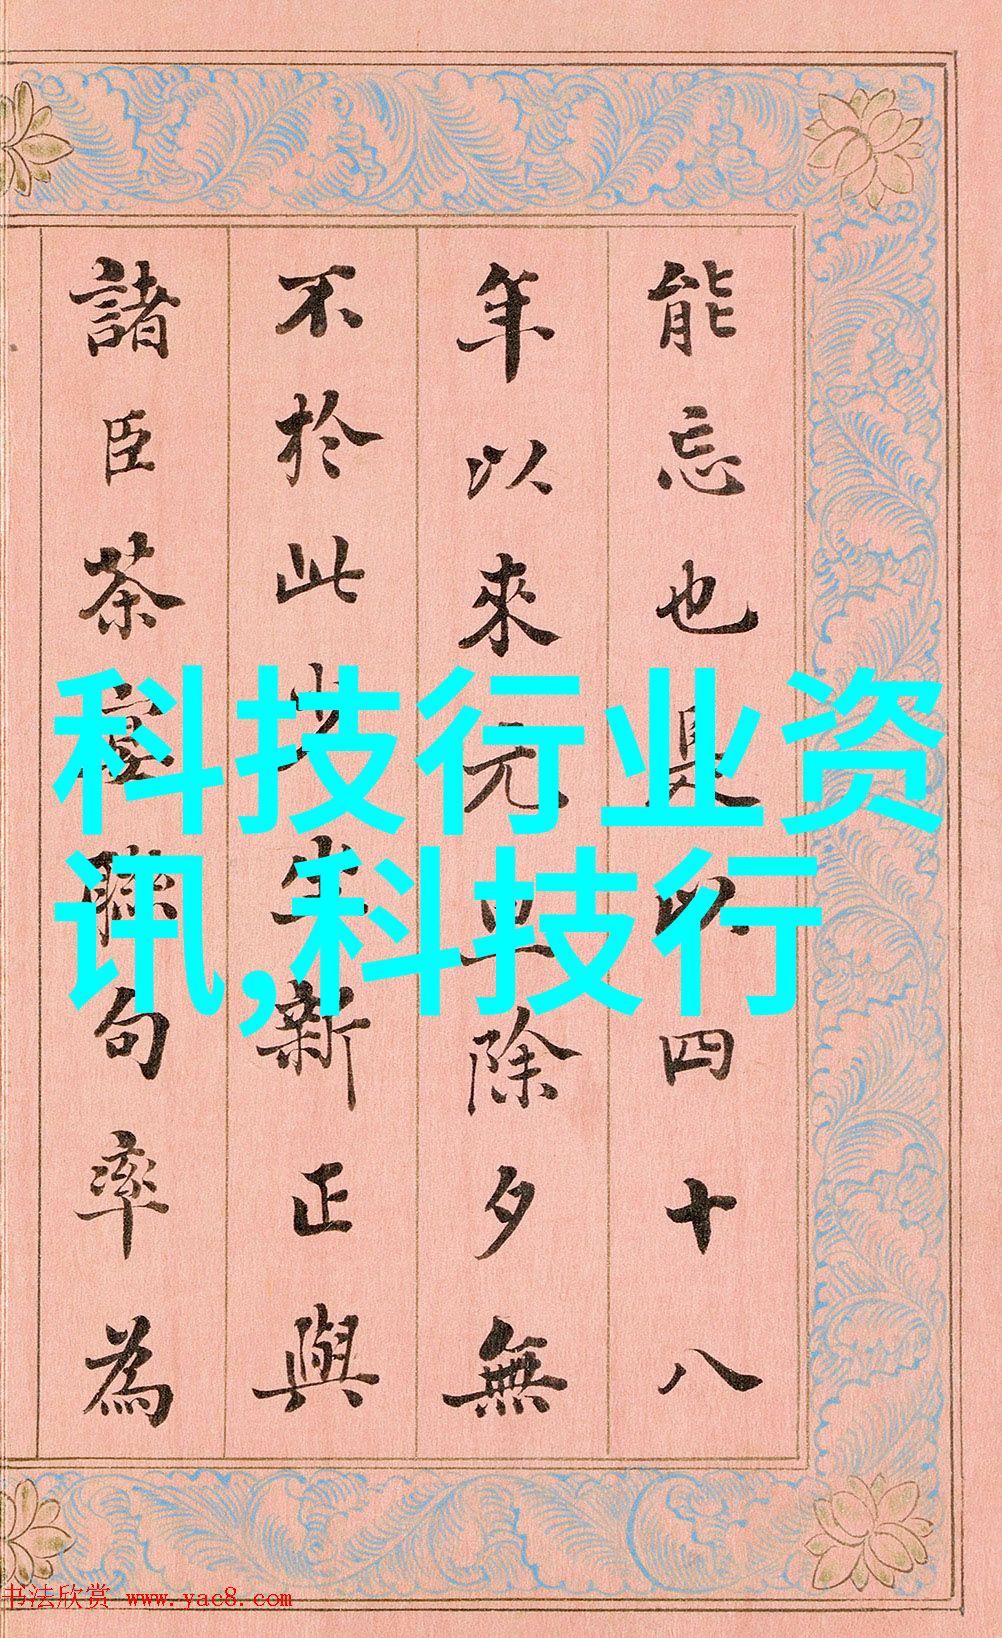 能忘也是以四十八
年以來元正除夕無
不於此少坐新正與
諸臣茶宴聯句率為
科技行业资
讯,科技行
书法欣赏 www.yac8.com